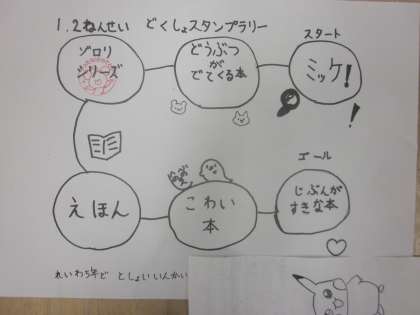 1.2ねんせい どくしょスタンプラリー
スタート
ミッケ!
!
どうぶつ
が
でてくる本
ゾロリ
シリーズ
えほん
こわい
本
ゴール
じぶんが
すきな本
れいわ5年ど としょいいんかい